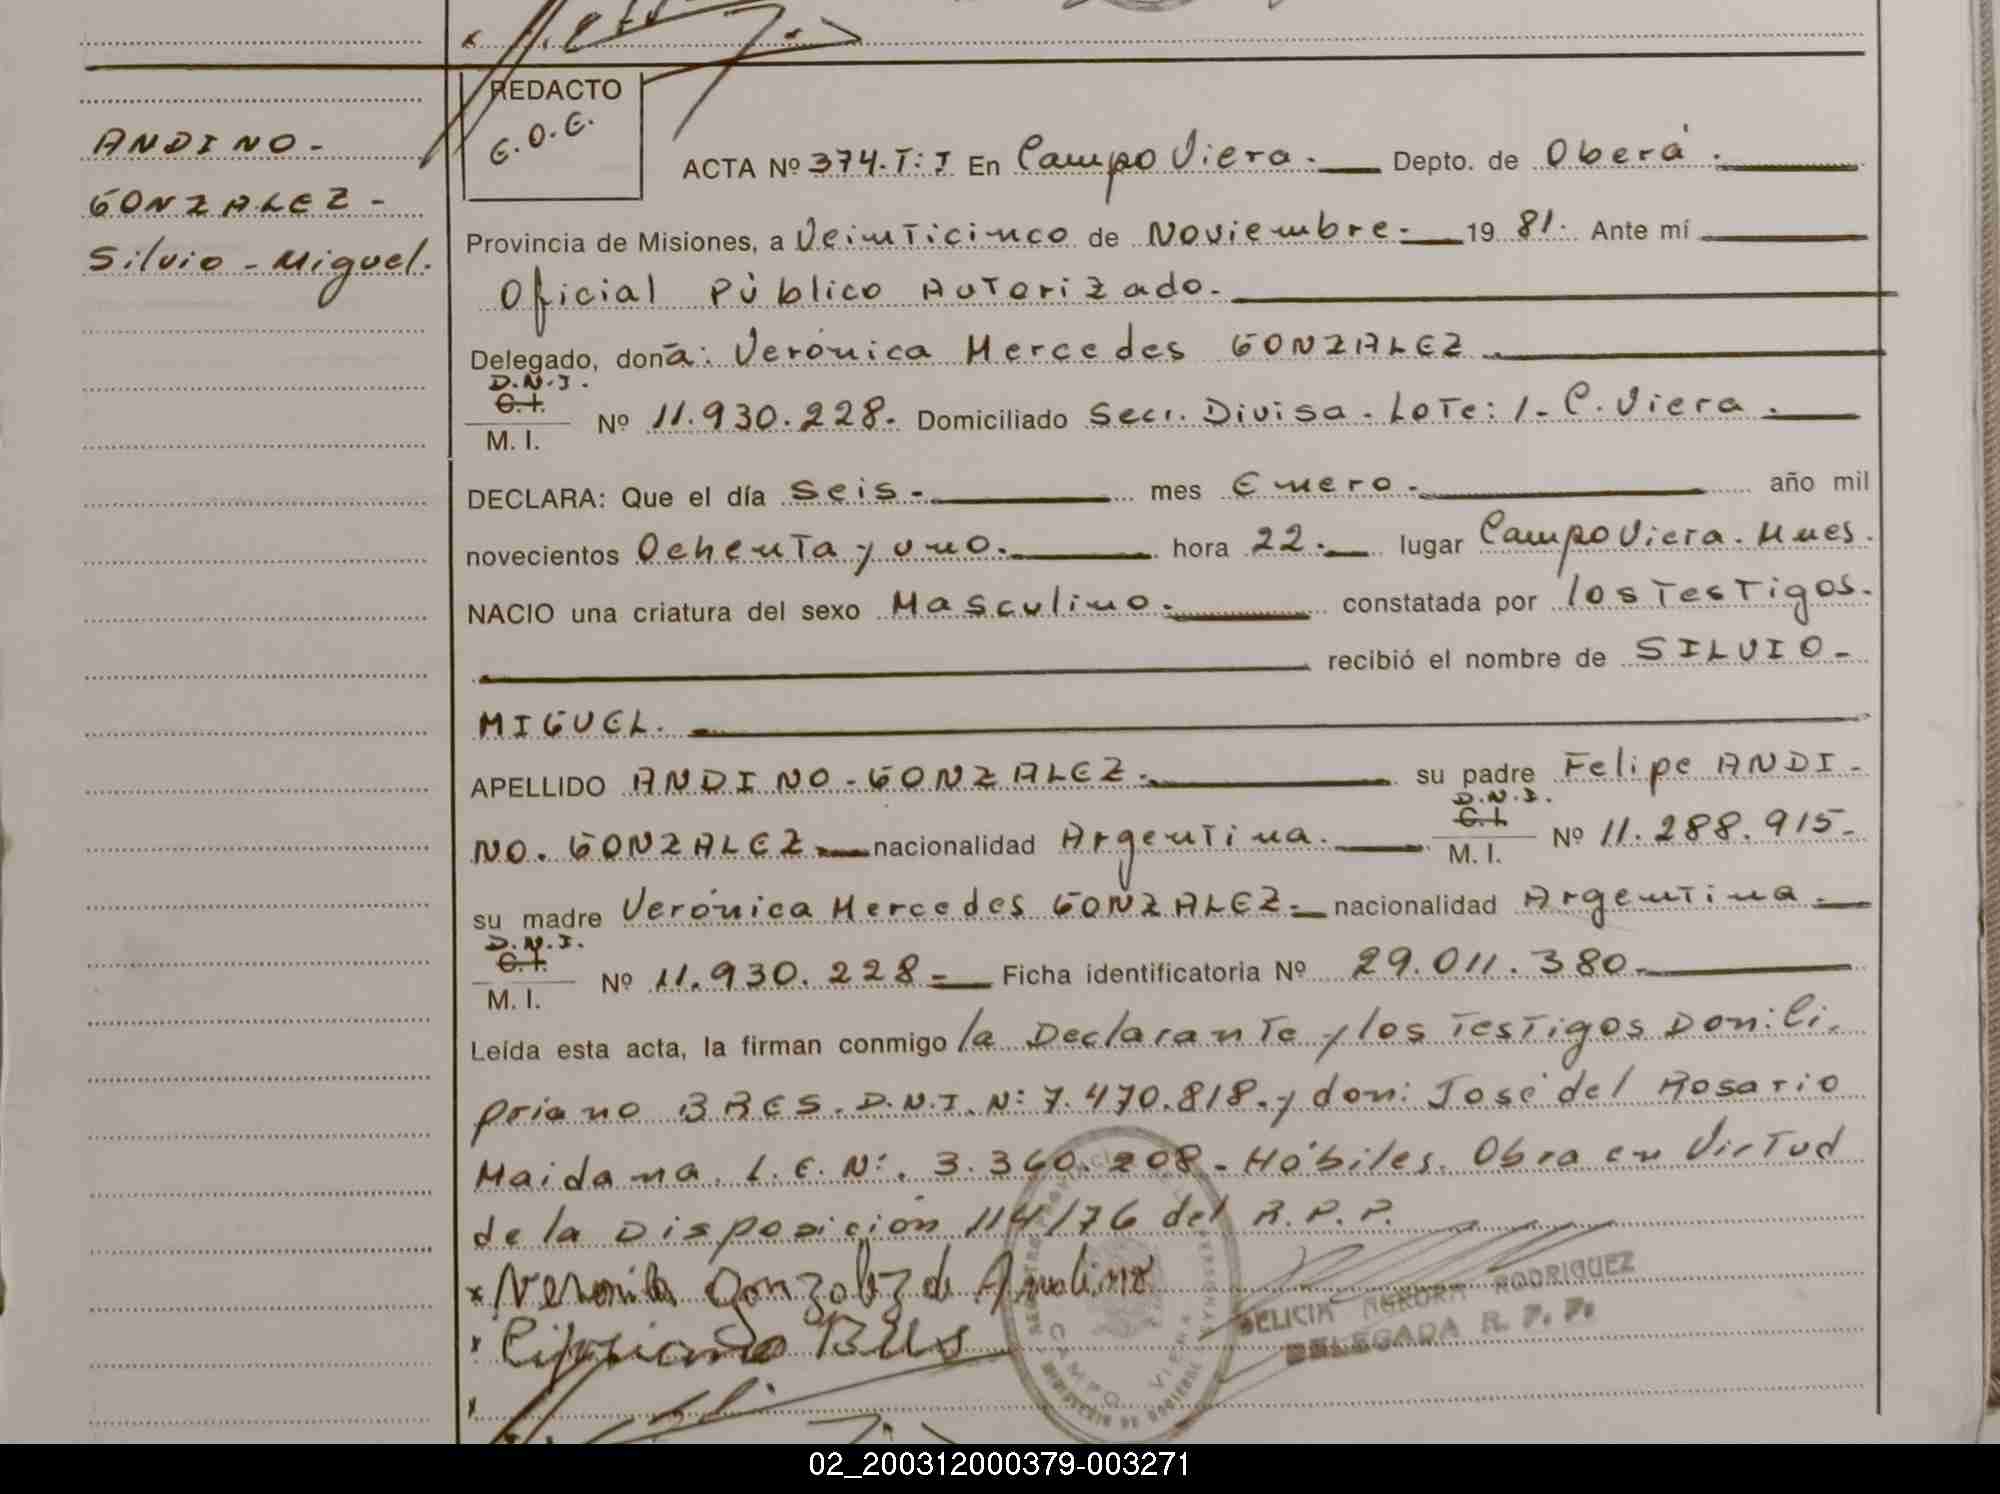 REDACTO
G.O.E.
ANDINO-
GONZALEZ-
Silvio-Miguel.
ACTA Nº 374.T:I En Campo Viera. Depto. de Oberá.
Provincia de Misiones, a Veinticinco de Noviembre- 19 81. Ante mí
Oficial Público Autorizado.
Delegado, doña: Verónica Mercedes GONZALEZ
D.N.I.
C.I.
M. I.
Nº 11.930.228. Domiciliado Secc. Divisa. Lote: 1- C. Viera.
DECLARA: Que el día Seis- mes Enero- año mil
novecientos Ochenta y uno. hora 22. lugar Campo Viera. Mnes.
NACIO una criatura del sexo Masculino. constatada por los Testigos.
recibió el nombre de SILVIO-
MIGUEL.
APELLIDO ANDINO-GONZALEZ. su padre Felipe ANDI-
D.N.I.
C.I.
M. I.
NO. GONZALEZ nacionalidad Argentina. Nº 11.288.915-
su madre Verónica Mercedes GONZALEZ- nacionalidad Argentina.
D.N.I.
C.I.
M. I.
Nº 11.930.228- Ficha identificatoria Nº 29.011.380-
Leída esta acta, la firman conmigo la Declarante y los Testigos Don: Ci-
priano BRES. D.N.I. N: 7.470.818. y don: José del Rosario
Maidana. L.E. Nº. 3.360.208- Hábiles. Obra en Virtud
de la Disposición 114/76 del R.P.P.
Veronica Gonzalez de Andino
Cipriano Bres
CAMPO VIERA
MINISTERIO DE GOBIERNO
AURORA RODRIGUEZ
DELEGADA R. P. P.
02_200312000379-003271